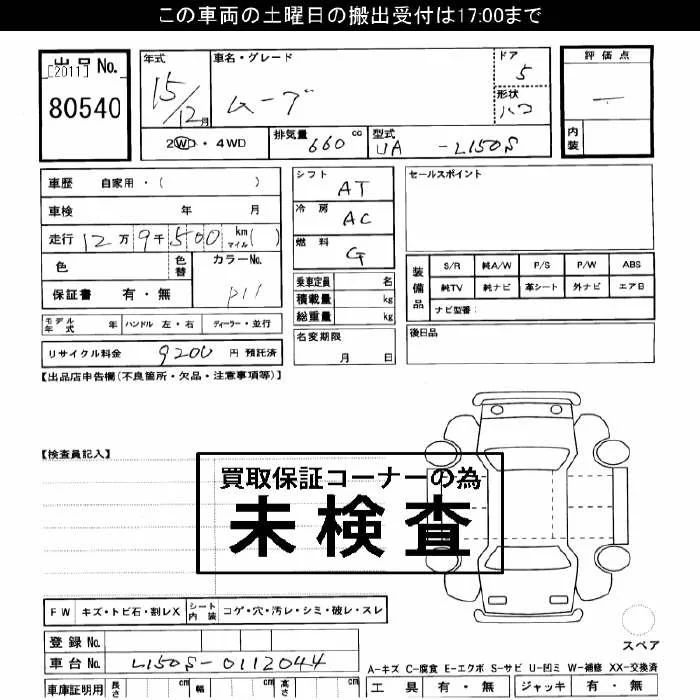 この車両の土曜日の搬出受付は17:00まで
出品No.
[2011]
80540
年式
15/12月
車名・グレード
ムーブ
ドア
5
形状
ハコ
評価点
—
内装
2WD・4WD
排気量 660 cc
型式 UA -L150S
車歴 自家用・( )
車検 年 月
走行 12万9千500 km マイル( )
色
色替
カラーNo.
P11
保証書 有・無
モデル年式 年 ハンドル 左・右 ディーラー・並行
リサイクル料金 9200 円 預託済
シフト AT
冷房 AC
燃料 G
乗車定員 名
積載量 kg
総重量 kg
名変期限
月 日
セールスポイント
装備品
S/R 純A/W P/S P/W ABS
純TV 純ナビ 革シート 外ナビ エアB
ナビ型番:
後日品
【出品店申告欄(不良箇所・欠品・注意事項等)】
【検査員記入】
買取保証コーナーの為
未検査
FW キズ・トビ石・割レX シート内装 コゲ・穴・汚レ・シミ・破レ・スレ
登録No.
車台No. L150S-0112044
車庫証明用 長さ cm 幅 cm 高さ cm
スペア
A-キズ C-腐食 E-エクボ S-サビ U-凹ミ W-補修 XX-交換済
工具 有・無 ジャッキ 有・無